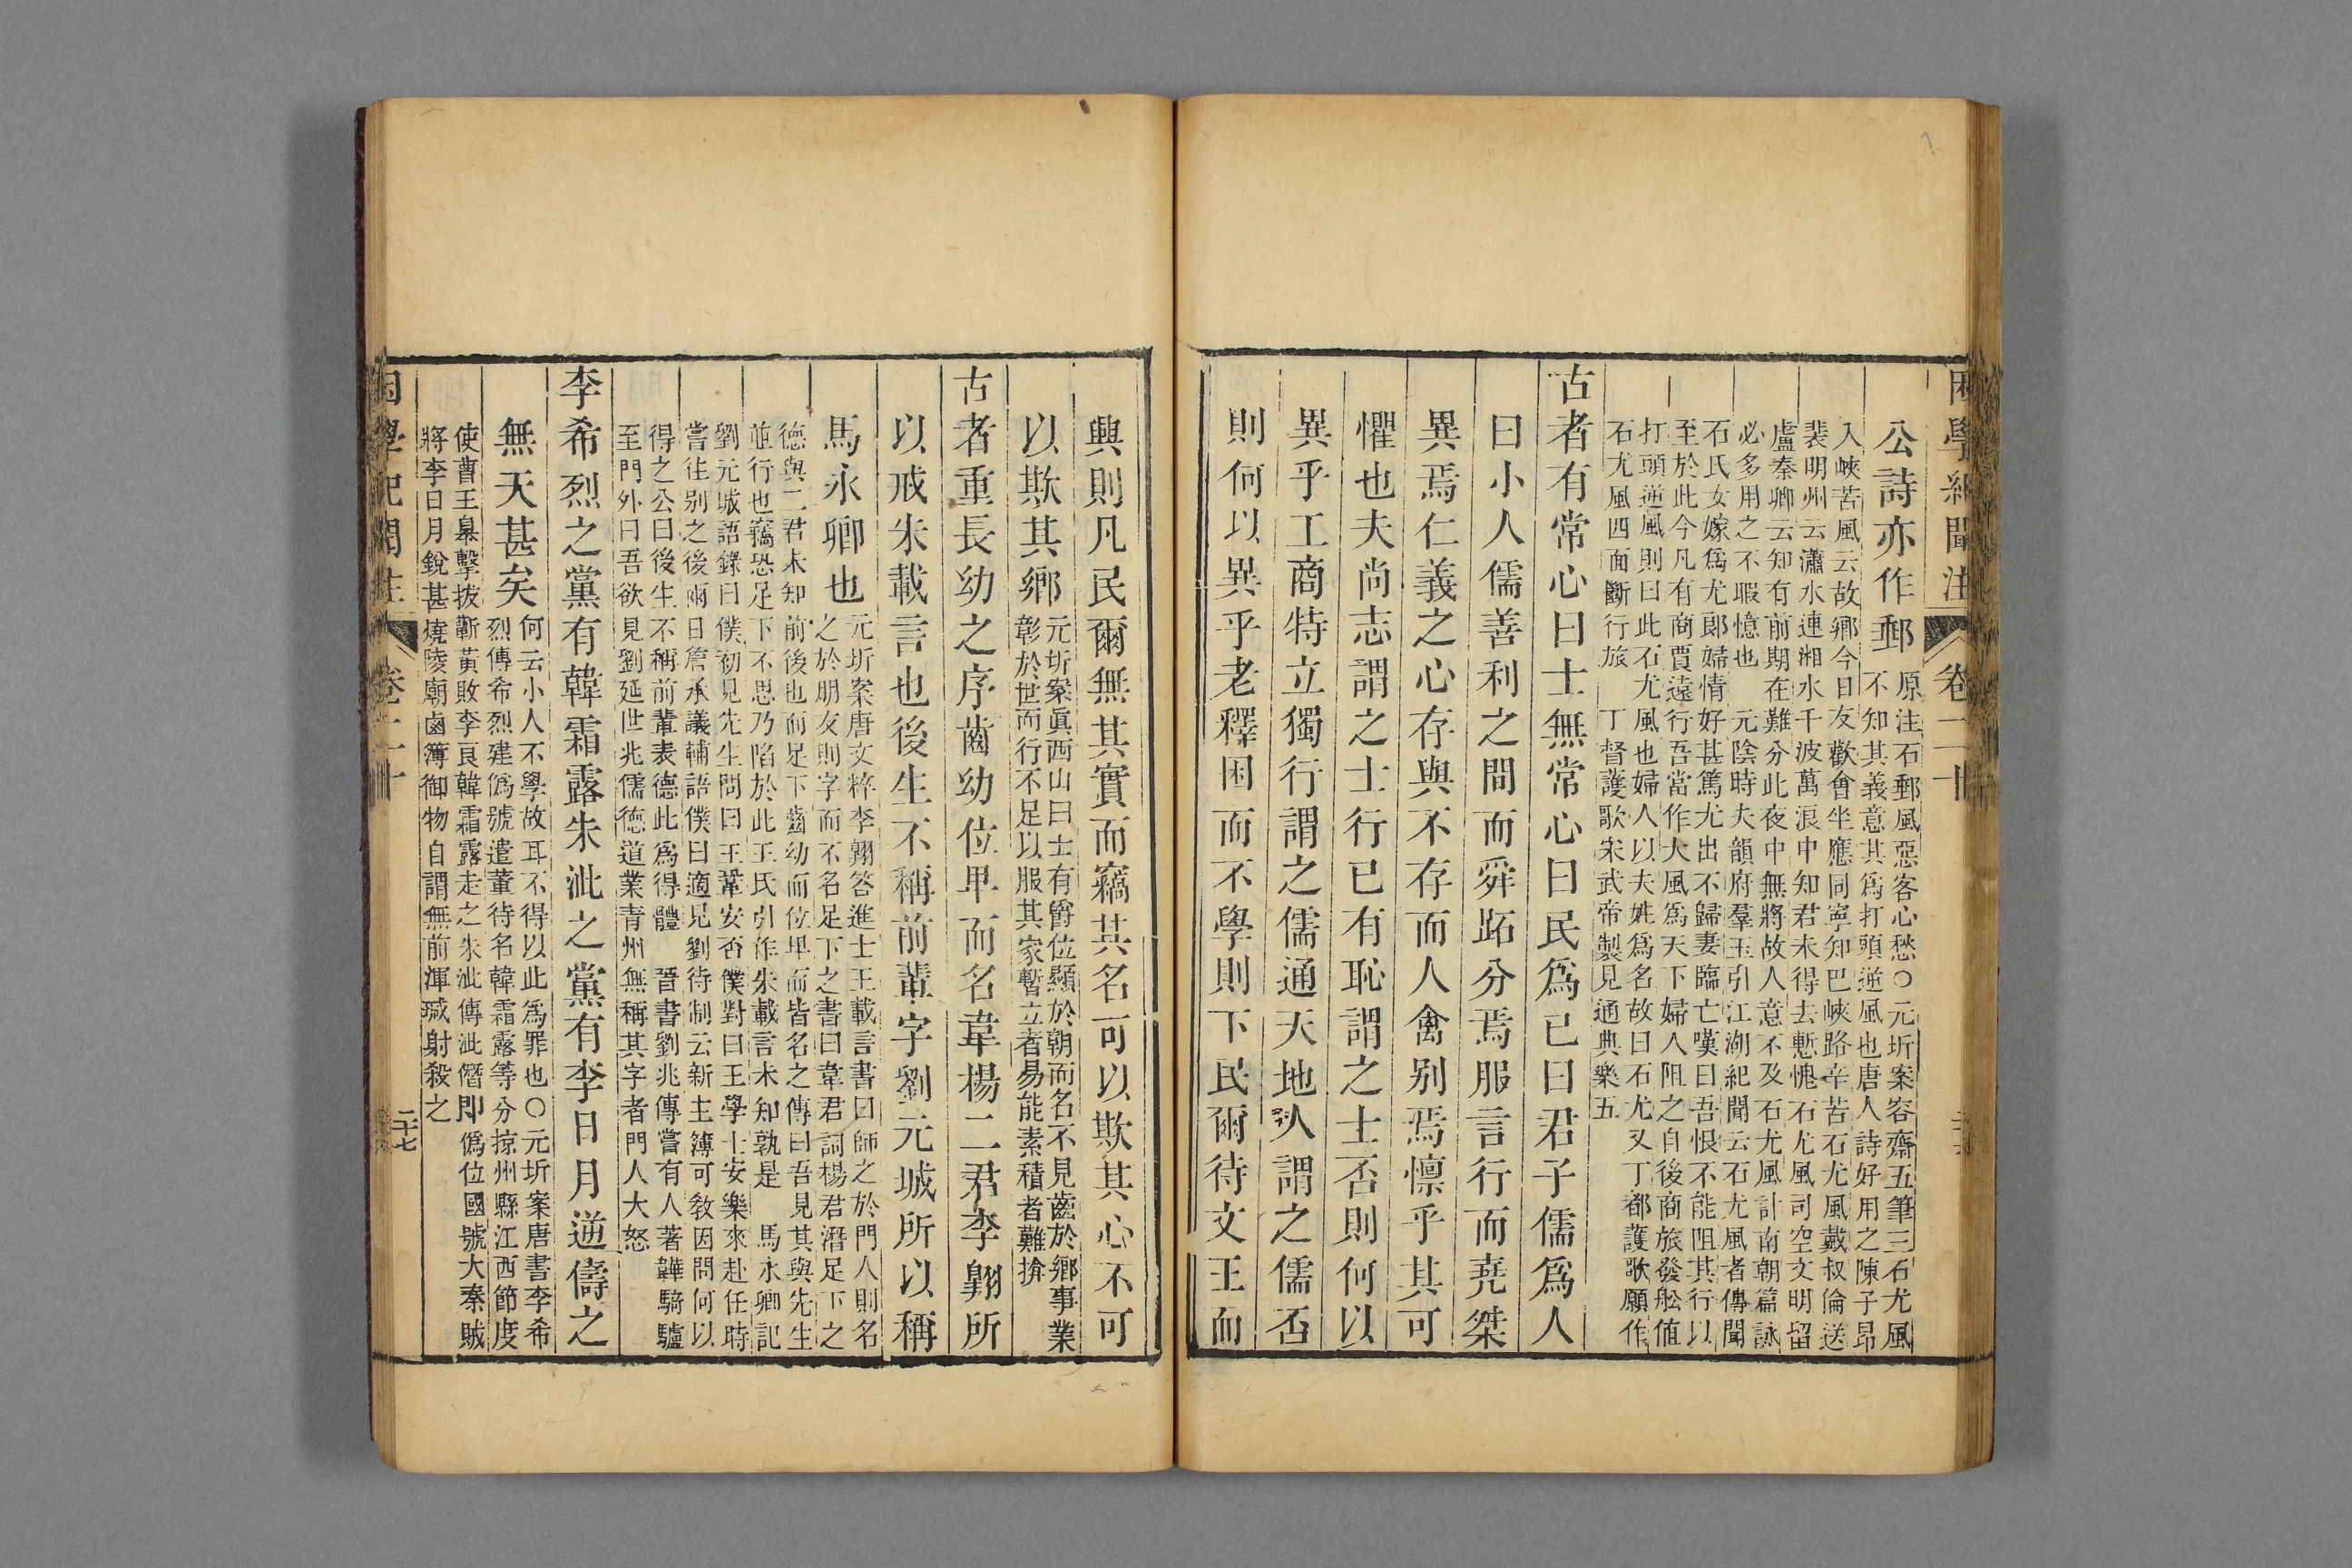 困學紀聞注 卷二十
公詩亦作郵
原注石郵風惡客心愁○元圻案容齋五筆三石尤風
不知其義意其爲打頭逆風也唐人詩好用之陳子昂
入峽苦風云故鄉今日友歡會坐應同寧知巴峽路辛苦石尤風戴叔倫送
裴明州云瀟水連湘水千波萬浪中知君未得去慙愧石尤風司空文明留
盧秦卿云知有前期在難分此夜中無將故人意不及石尤風計南朝篇詠
必多用之不暇憶也 元陰時夫韻府羣玉引江湖紀聞云石尤風者傳聞
石氏女嫁爲尤郎婦情好甚篤尤出不歸妻臨亡嘆曰吾恨不能阻其行以
至於此今凡有商賈遠行吾當作大風爲天下婦人阻之自後商旅發舩值
打頭逆風則曰此石尤風也婦人以夫姓爲名故曰石尤又丁都護歌願作
石尤風四面斷行旅 丁督護歌宋武帝製見通典樂五
古者有常心曰士無常心曰民爲己曰君子儒爲人
曰小人儒善利之間而舜跖分焉服言行而堯桀
異焉仁義之心存與不存而人禽别焉懍乎其可
懼也夫尚志謂之士行己有恥謂之士否則何以
異乎工商特立獨行謂之儒通天地人謂之儒否
則何以異乎老釋困而不學則下民爾待文王而
興則凡民爾無其實而竊其名可以欺其心不可
以欺其鄉
元圻案眞西山曰士有爵位顯於朝而名不見齒於鄉事業
彰於世而行不足以服其家暫立者易能素積者難揜
古者重長幼之序齒幼位卑而名韋楊二君李翺所
以戒朱載言也後生不稱前輩字劉元城所以稱
馬永卿也
元圻案唐文粹李翺答進士王載言書曰師之於門人則名
之於朋友則字而不名足下之書曰韋君詞楊君潛足下之
德與二君未知前後也而足下齒幼而位卑而皆名之傳曰吾見其與先生
並行也竊恐足下不思乃陷於此王氏引作朱載言未知孰是 馬永卿記
劉元城語錄曰僕初見先生問曰王鞏安否僕對曰王學士安樂來赴任時
嘗往别之後兩日管承議輔語僕曰適見劉待制云新主簿可敎因問何以
得之公曰後生不稱前輩表德此爲得體 晉書劉兆傳嘗有人著韡騎驢
至門外曰吾欲見劉延世兆儒德道業青州無稱其字者門人大怒
李希烈之黨有韓霜露朱泚之黨有李日月逆儔之
無天甚矣
何云小人不學故耳不得以此爲罪也○元圻案唐書李希
烈傳希烈建僞號遣董待名韓霜露等分掠州縣江西節度
使曹王臯擊拔蘄黃敗李良韓霜露走之朱泚傳泚僭即僞位國號大秦賊
將李日月銳甚燒陵廟鹵簿御物自謂無前渾瑊射殺之
困學紀聞注 卷二十 二十七